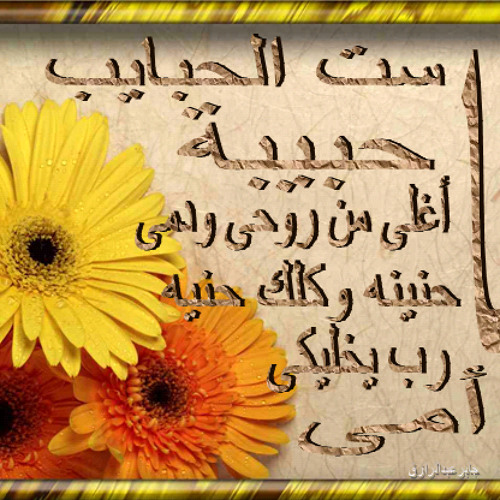 ست الحبايب
حبيبة
أغلى من روحى ودمى
حنينه وكلك حنيه
رب يخليكى
أمى
جابر عبدالرازق